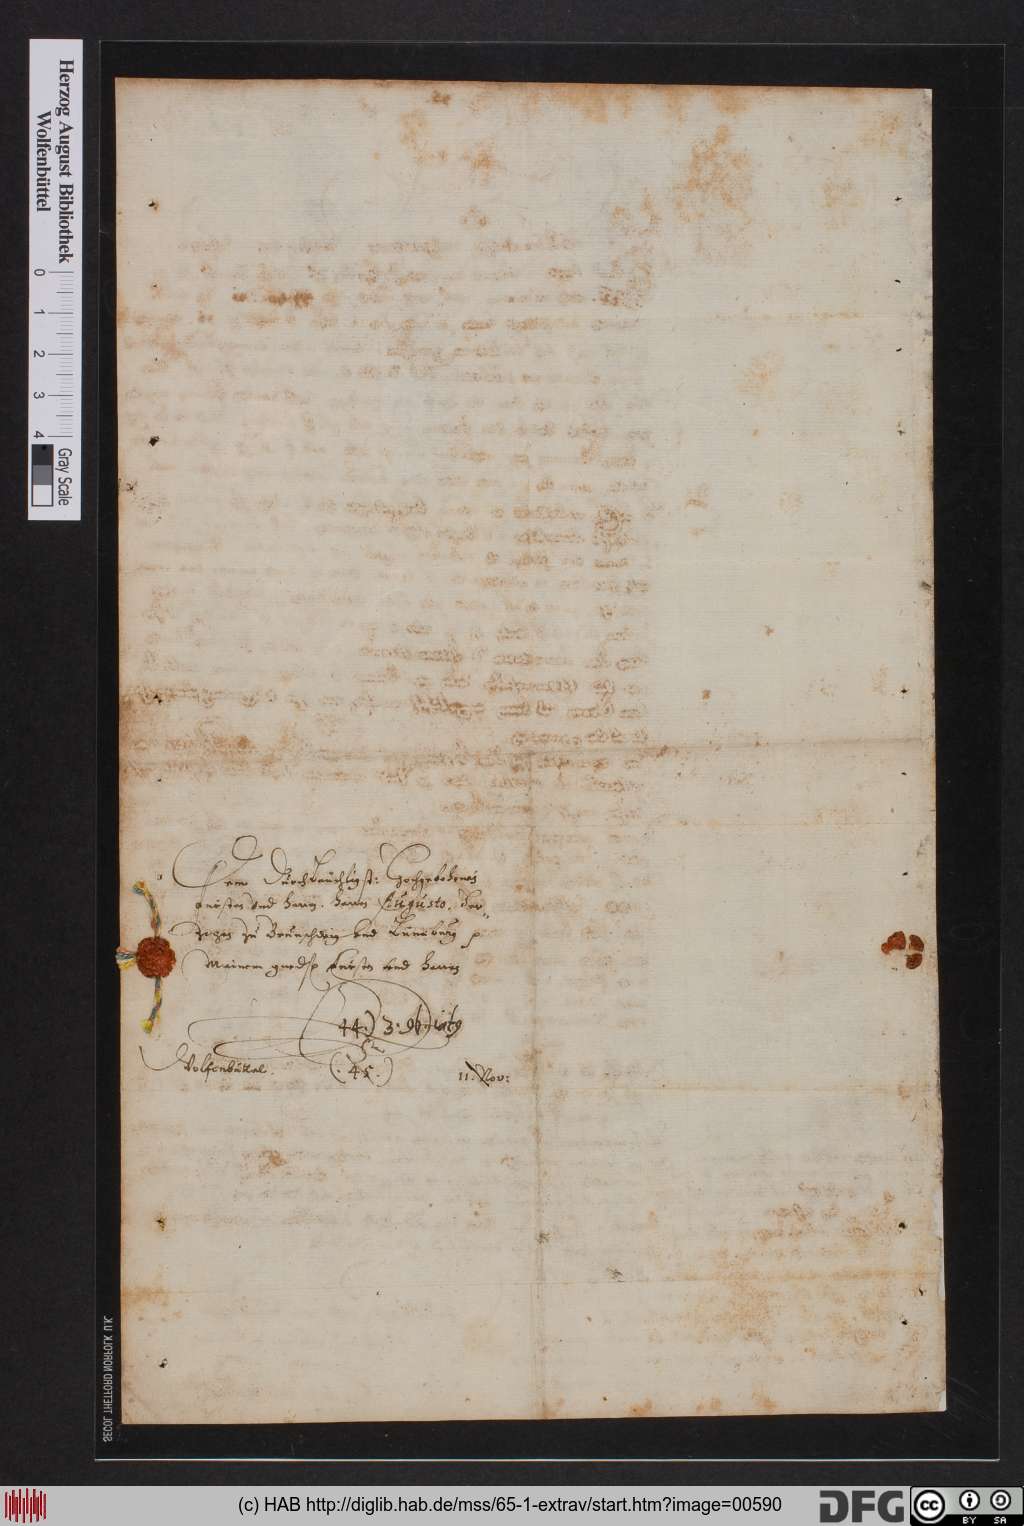 Herzog August Bibliothek
Wolfenbüttel
0 1 2 3 4
Gray Scale
Dem Durchleuchtigst: Hochgebohrnen
Fursten vnd Herrn, Herrn Augusto, Her-
zogen zu Braunschweig vnd Luneburg p
Meinem gnedsp Fursten vnd Herren
44.) 3.
Wolfenbüttel.
(. 45.)
11. Nov:
SECOL THETFORD NORFOLK U.K.
(c) HAB http://diglib.hab.de/mss/65-1-extrav/start.htm?image=00590
DFG
cc
BY SA